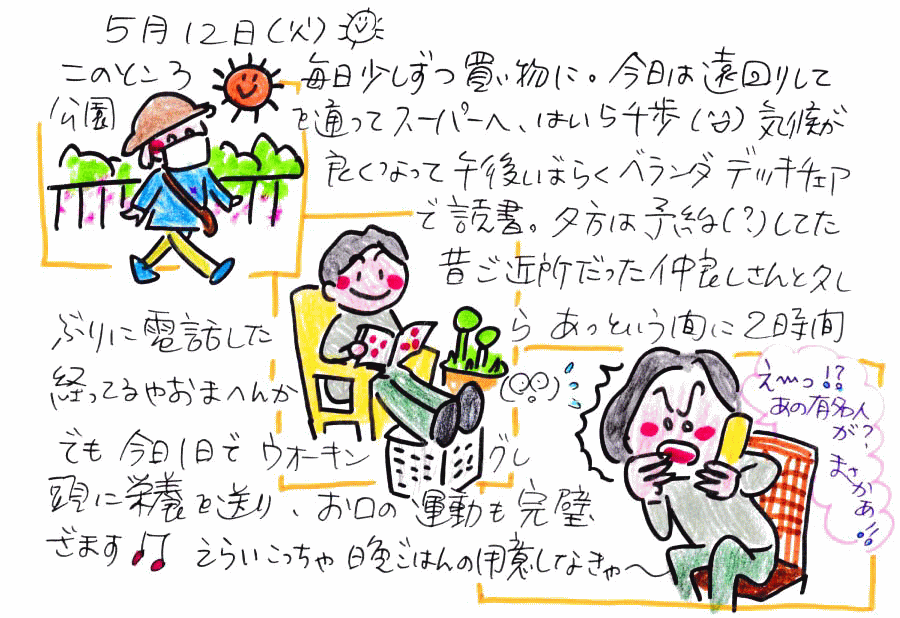 5月12日(火)
このところ 毎日少しずつ買い物に。今日は遠回りして
公園を通ってスーパーへ、はい5千歩(^o^)気候が
良くなって午後しばらくベランダデッキチェア
で読書。夕方は予約(?)してた
昔ご近所だった仲良しさんと久し
ぶりに電話したら あっという間に2時間
経ってるやおまへんか
でも今日1日でウオーキングし
頭に栄養を送り、お口の運動も完璧
ざます♫ えらいこっちゃ晩ごはんの用意しなきゃ〜
え〜っ!?
あの有名人
が?
まさかあ!!